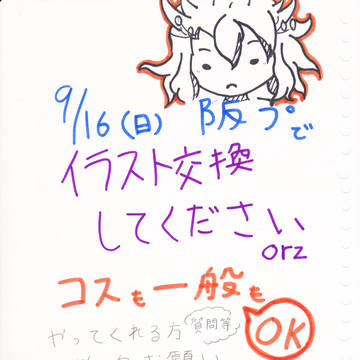 9/16(日) 阪プで
イラスト交換
してください
orz
コスも一般も
OK
やってくれる方
質問等
お願い